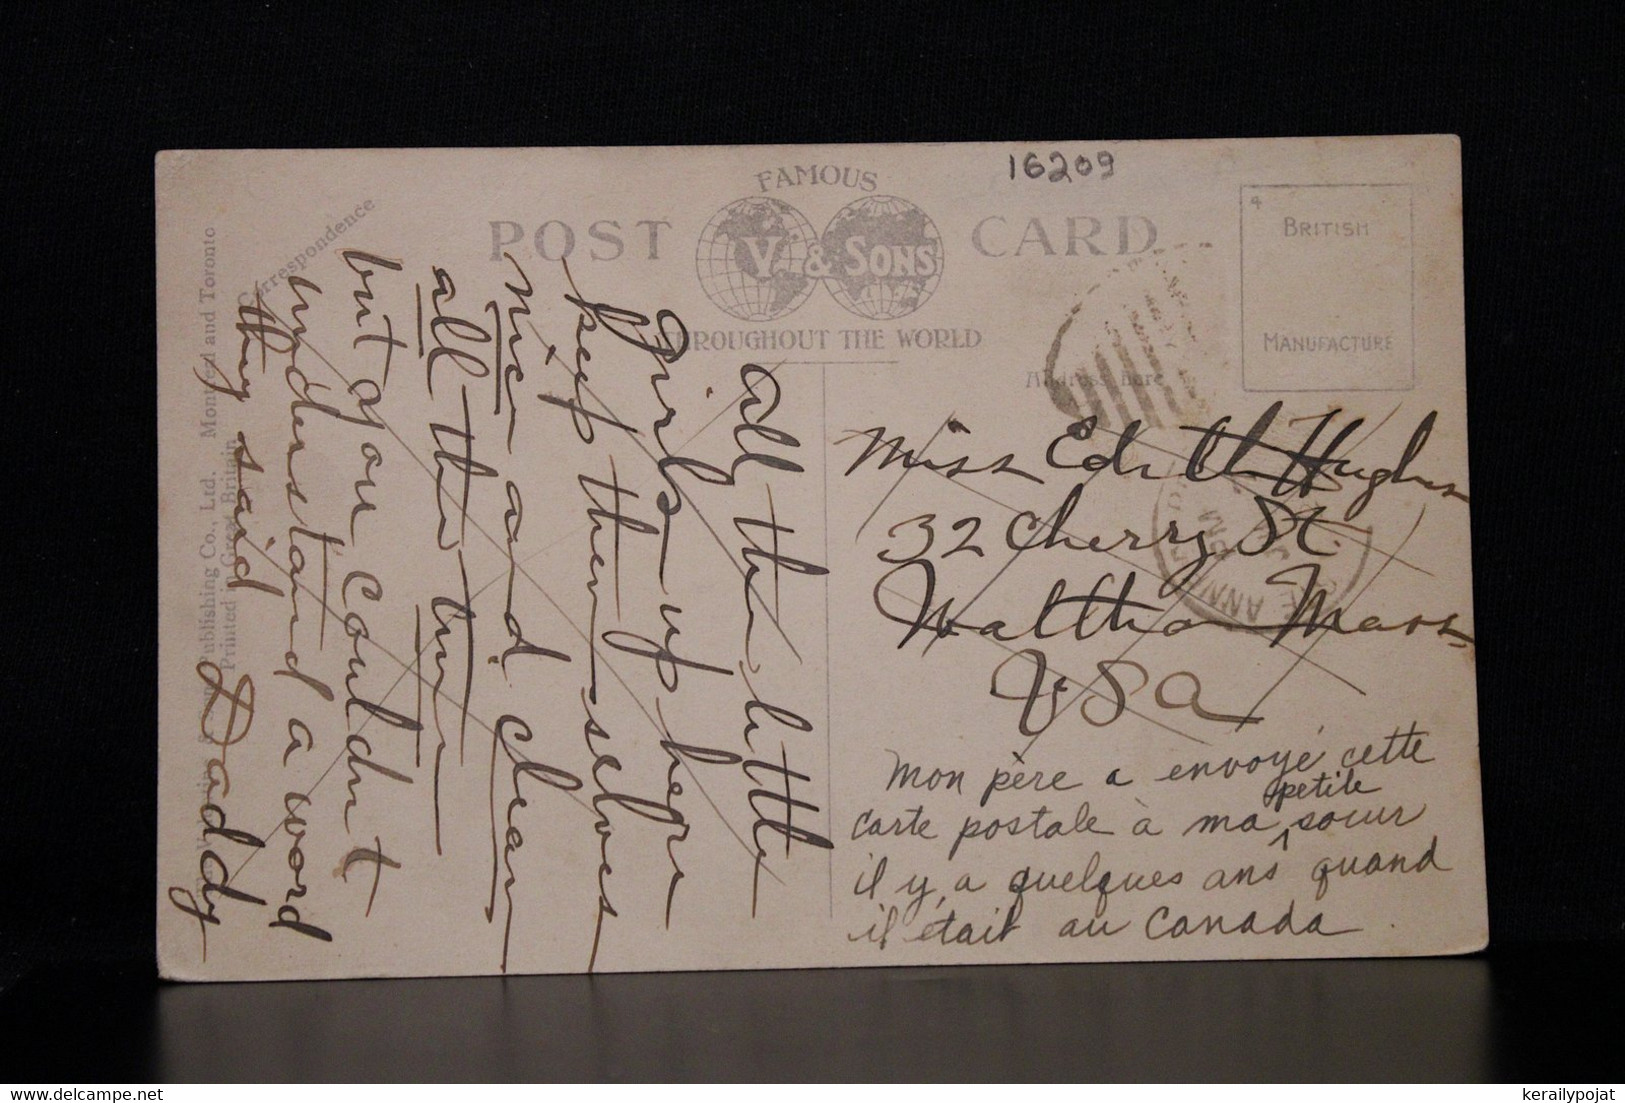 16209
FAMOUS
POST CARD
V. & SONS
THROUGHOUT THE WORLD
4
BRITISH
MANUFACTURE
Correspondence
Address here
Publishing Co., Ltd. Montreal and Toronto
Printed in Great Britain
all the little
girls up here
keep themselves
nice and clean
all the time
but you couldnt
understand a word
they said
Daddy
Miss Edith Hughes
32 Cherry St.
Waltham Mass
USA
PM
Mon père a envoyé cette
carte postale à ma petite soeur
il y a quelques ans quand
il était au Canada.
© www.delcampe.net
kerailypojat